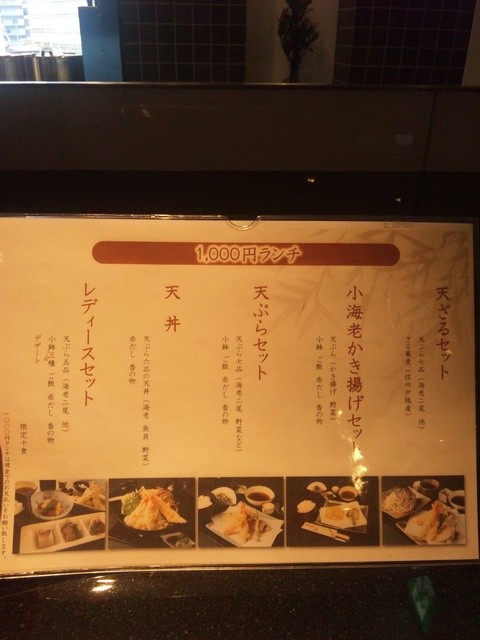 1,000円ランチ
天ざるセット
天ぷら七品(海老二尾 他)
ざる蕎麦(信州戸隠産)
小海老かき揚げセット
天ぷら(かき揚げ 野菜)
小鉢 ご飯 赤だし 香の物
天ぷらセット
天ぷら七品(海老二尾 野菜など)
小鉢 ご飯 赤だし 香の物
天丼
天ぷら六品の天丼(海老 魚貝 野菜)
赤だし 香の物
レディースセット
天ぷら五品(海老二尾 他)
小鉢三種 ご飯 赤だし 香の物
デザート
限定十食
一〇〇〇円ランチは現金でのお支払いをお願い致します。